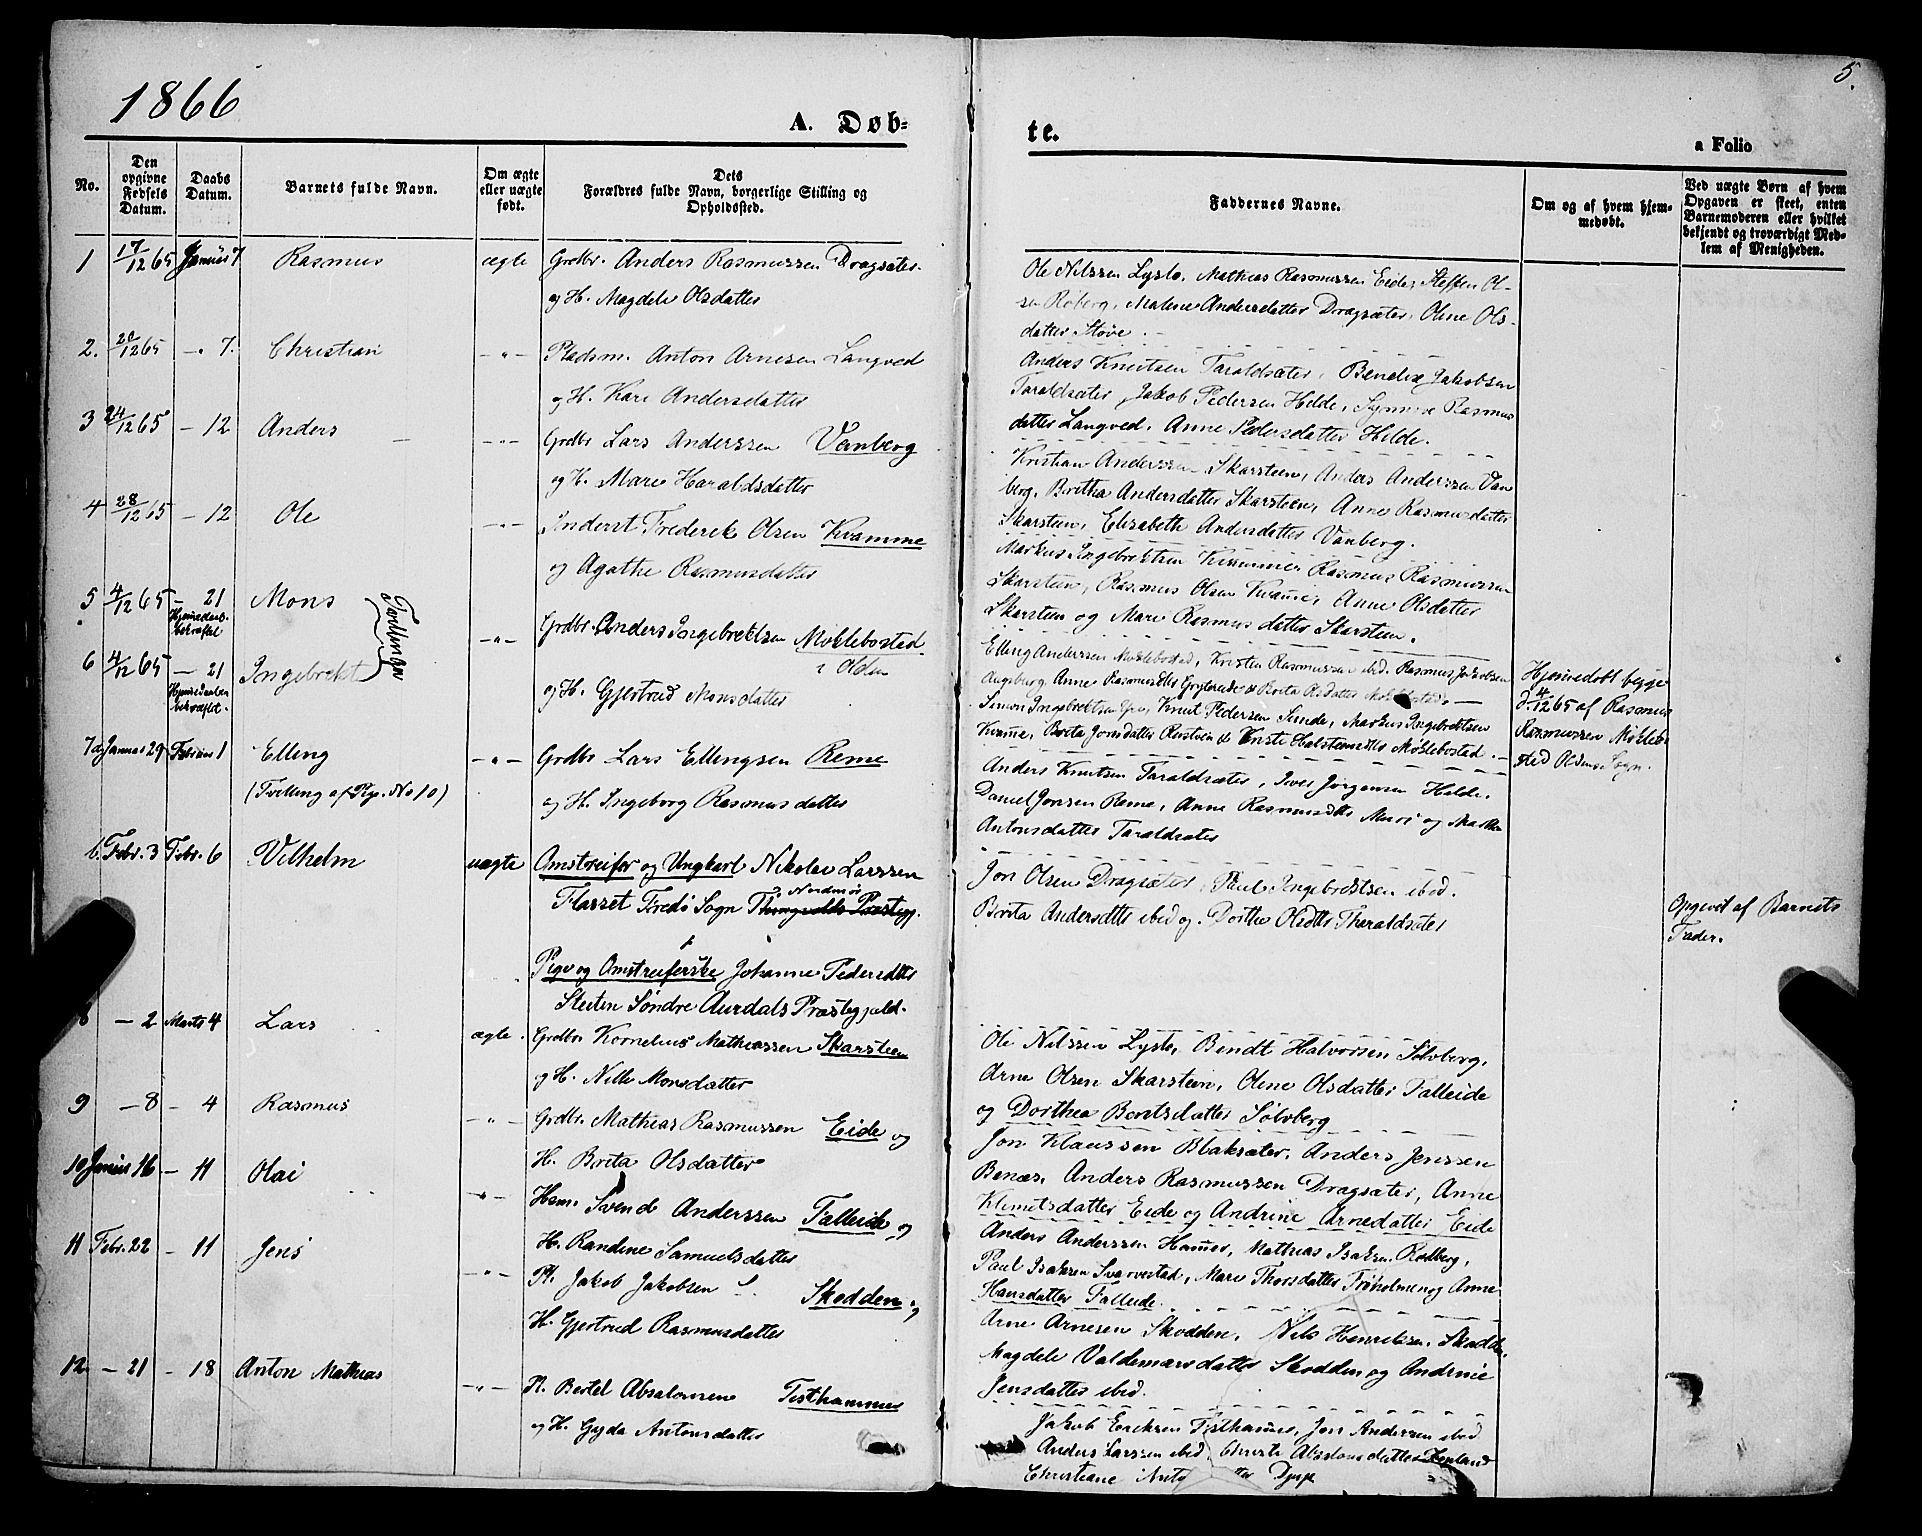 1866
5.
A. Døb=
te.
a Folio
No.
Den opgivne Fødsels Datum.
Daabs Datum.
Barnets fulde Navn.
Om ægte eller uægte født.
Dets Forældres fulde Navn, borgerlige Stilling og Opholdssted.
Faddernes Navne.
Om og af hvem hjemmedøbt.
Ved uægte Børn af hvem Opgaven er skeet, enten Barnemoderen eller hvilket bekjendt og troværdigt Medlem af Menigheden.
1 17/12 65 Januar 7 Rasmus ægte Grdbr. Anders Rasmussen Dragsæter
og H. Magdele Olsdatter
Ole Nilssen Lyslo, Mathias Rasmussen Eide, Steffen Ol-
sen Roberg, Malene Andersdatter Dragsæter, Oline Ols-
datter Støve.
2. 20/12 65 -"- 7. Christian -"- Pladsm. Anton Arnesen Langved
og H. Kari Andersdatter
Anders Knutsen Taraldsæter, Bendix Jakobsen
Taraldsæter, Jakob Pedersen Hilde, Synneve Rasmus
datter Langved, Anne Pedersdatter Hilde.
3 24/12 65 - 12 Anders -"- Grdbr Lars Anderssen Vanberg
og H. Mari Haraldsdatter
Kristian Anderssen Skarsteen, Anders Anderssen Van
berg, Brithe Andersdatter Skarsteen, Anne Rasmusdatter
Skarsteen, Elisabeth Andersdatter Vanberg.
4 28/12 65 - 12 Ole -"- Inderst Frederik Olsen Kvamme
og Agathe Rasmusdatter
Markus Ingebrektsen Rasmus Rasmussen
Skarsteen, Rasmus Olsen Kvame, Anne Olsdatter
Skarsteen og Mari Rasmusdatter Skarsteen.
5 4/12 65 - 21 Mons
Hjemmedaab bekræftet
Tvillinger
-"- Grdbr. Anders Ingebrektsen Møklebostad
i Olden
6 4/12 65 - 21 Ingebrekt
Hjemmedaaben bekræftet.
og H. Gjertrud Monsdatter
Elling Anderssen Møklebostad, Kristen Rasmussen ibid. Rasmus Jakobsen
Augsburg, Anne Rasmusdtr & Brita Olsdatter
Simon Ingebrektsen Knut Pedersen Sunde, Markus Ingebrektsen
Kvame, Brita Jonsdatter & Møklebostad.
Hjemmedøbt begge
d. 4/12 65 af Rasmus
Rasmussen Møklebo
sted Oldens Sogn.
7 Januar 29 Februar 1 Elling -"- Grdbr Lars Ellingsen Reme
(Tvilling af Pige No 10)
og H. Ingeborg Rasmusdatter
Anders Knutsen Taraldsæter, Iver Jørgensen Hilde,
Daniel Jonsen Reme, Anne Rasmusdtr Muri og
Antonsdatter Taraldsæter
Febr. 3 Febr. 6 Vilhelm uægte Omstreifer og Ungkarl Nikolai Larssen
Flasset Fredø Sogn Nordmør Thingvolds Præstegj.
Pige og Omstreiferske Johanne Pedersdtr
Steiten Søndre Aurdals Præstegjæld.
Jon Olsen Dragsæter, Paul Ingebrektsen ibid.
Brita Andersdtr ibid og Dorthe Olsdtr Tharaldsæter
Opgivet af Barnets
Fader.
8 - 2 Marts 4 Lars ægte Grdbr. Kornelius Mathiassen Skarsteen
og H. Nille Monsdatter
Ole Nilssen Lyslo, Bendt Halvorsen Solvberg,
Arne Olsen Skarsteen, Oline Olsdatter Falleide
og Dorthea Bentsdatter Solvberg
9 - 8 - 4 Rasmus -"- Grdbr. Mathias Rasmussen Eide og
H. Brita Olsdatter
Jon Klaussen Blaksæter, Anders Jenssen
Benæs, Anders Rasmussen Dragsæter, Anne
Klimetsdatter Eide og Andrine Arnedatter Eide
10 Januar 16 - 11 Olai -"- Hsm. Svend Anderssen Falleide og
H. Randine Samuelsdatter
Anders Anderssen Hamer, Mathias Isaksen Rodberg,
Paul Isaksen Svarvestad, Mari Thorsdatter og Anne
Hansdatter Falleide.
11 Febr. 22 - 11 Jens -"- Pl. Jakob Jakobsen Skodden og
H. Gjertrud Rasmusdatter
Arne Arnesen Skodden, Nils Henriksen Skodden,
Magdele Valdemarsdatter Skodden og Andrine
Jensdatter ibid.
12 - 21 - 18 Anton Mathias -"- Pl. Bertel Absalonsen Tisthammer
og H. Gyda Antonsdatter
Jakob Eriksen Tisthamer, Jon Andersen ibid
Anders Larssen ibid, Absalonsdatter
Christiane